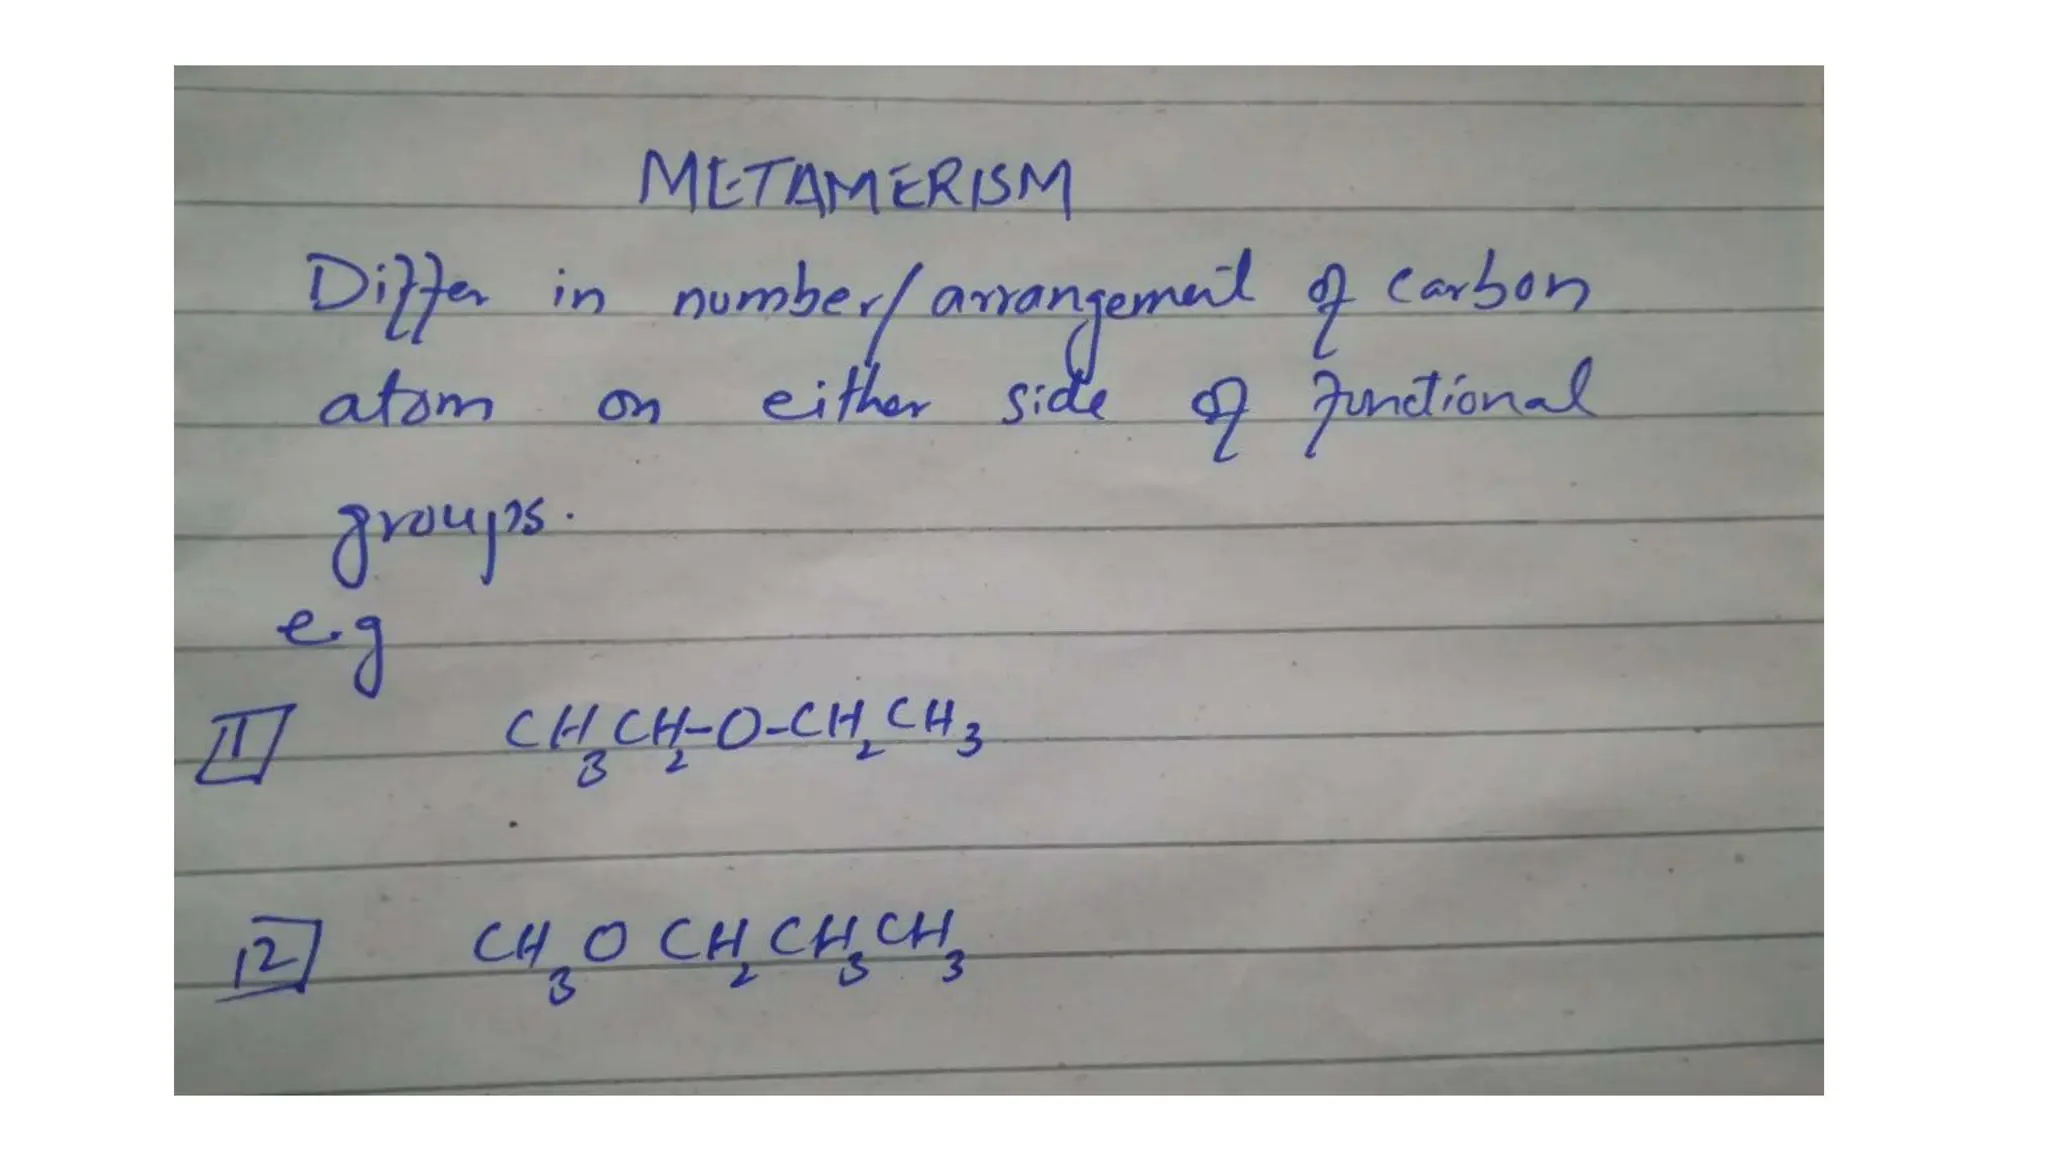 METAMERISM
Differ in number/arrangement of carbon
atom on either side of functional
groups.
e.g
1 CH₃CH₂-O-CH₂CH₃
2 CH₃O CH₂CH₃CH₃